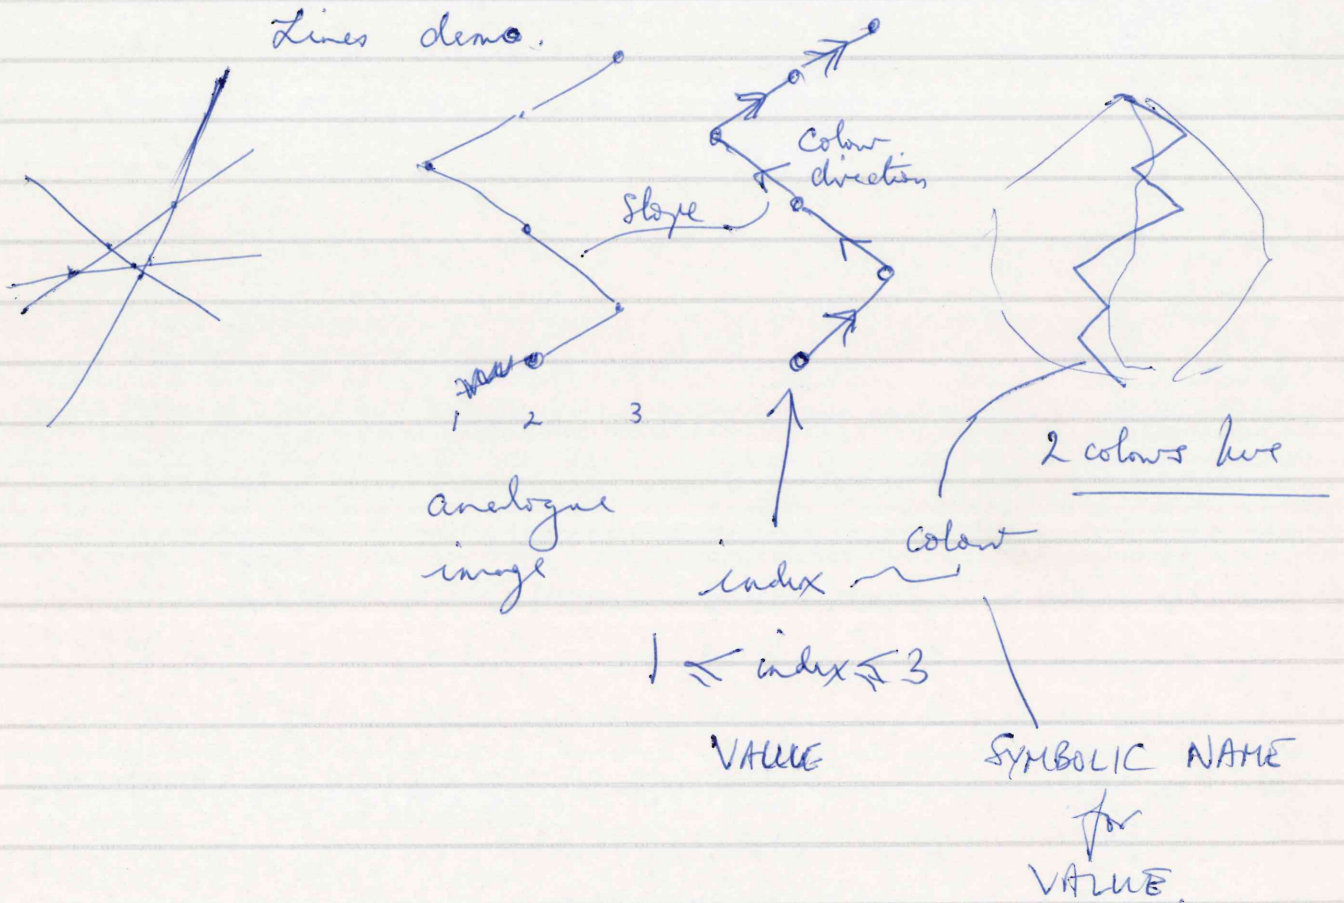 Lines demo.
Colour
direction
Slope
1 2 3
analogue
image
2 colours here
colour
index
1 ≤ index ≤ 3
VALUE
SYMBOLIC NAME
for
VALUE.